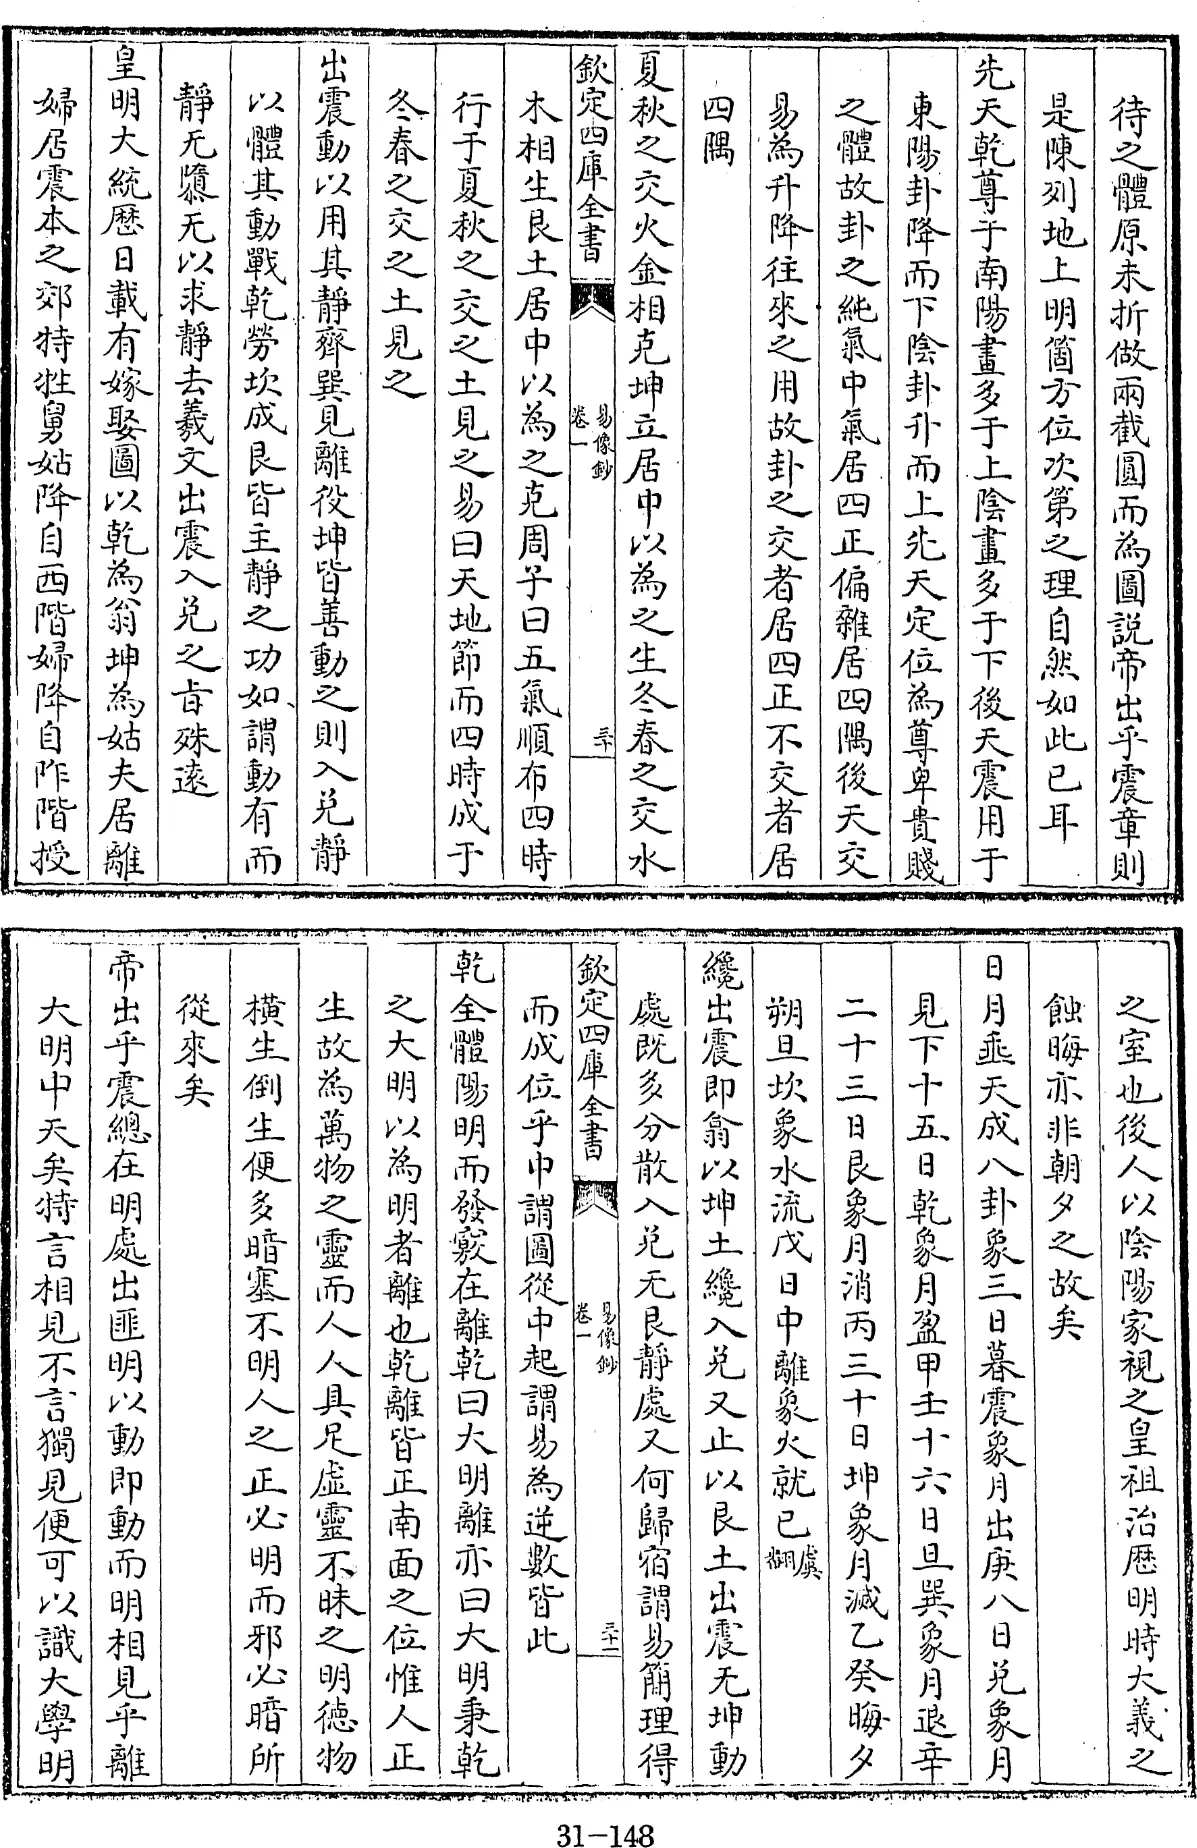 待之體原未折做兩截圓而為圖説帝出乎震章則
是陳列地上明箇方位次第之理自然如此已耳
先天乾尊于南陽畫多于上陰畫多于下後天震用于
東陽卦降而下陰卦升而上先天定位為尊卑貴賤
之體故卦之純氣中氣居四正偏雜居四隅後天交
易為升降往來之用故卦之交者居四正不交者居
四隅
夏秋之交火金相克坤立居中以為之生冬春之交水
欽定四庫全書
易像鈔
卷一
三十
木相生艮土居中以為之克周子曰五氣順布四時
行于夏秋之交之土見之易曰天地節而四時成于
冬春之交之土見之
出震動以用其靜齊巽見離役坤皆善動之則入兑靜
以體其動戰乾勞坎成艮皆主靜之功如謂動有而
靜无隳无以求靜去羲文出震入兑之㫖殊逺
皇明大統厯日載有嫁娶圖以乾為翁坤為姑夫居離
婦居震本之郊特牲舅姑降自西階婦降自阼階授
之室也後人以陰陽家視之皇祖治厯明時大義之
蝕晦亦非朝夕之故矣
日月垂天成八卦象三日暮震象月出庚八日兑象月
見丁十五日乾象月盈甲壬十六日旦巽象月退辛
二十三日艮象月消丙三十日坤象月滅乙癸晦夕
朔旦坎象水流戊日中離象火就已虞翻
纔出震即翕以坤土纔入兑又止以艮土出震无坤動
處既多分散入兑无艮靜處又何歸宿謂易簡理得
欽定四庫全書
易像鈔
卷一
三十一
而成位乎中謂圖從中起謂易為逆數皆此
乾全體陽明而發竅在離乾曰大明離亦曰大明秉乾
之大明以為明者離也乾離皆正南面之位惟人正
生故為萬物之靈而人人具足虛靈不昧之明徳物
橫生倒生便多暗塞不明人之正必明而邪必暗所
從來矣
帝出乎震總在明處出匪明以動即動而明相見乎離
大明中天矣特言相見不言獨見便可以識大學明
31-148